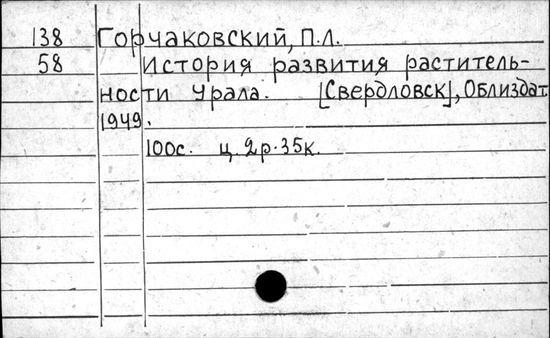 138 Горчаковский, П.Л.
58 История развития раститель-
ности Урала. [Свердловск], Облиздат
1949.
100с. ц. 2р.35к.